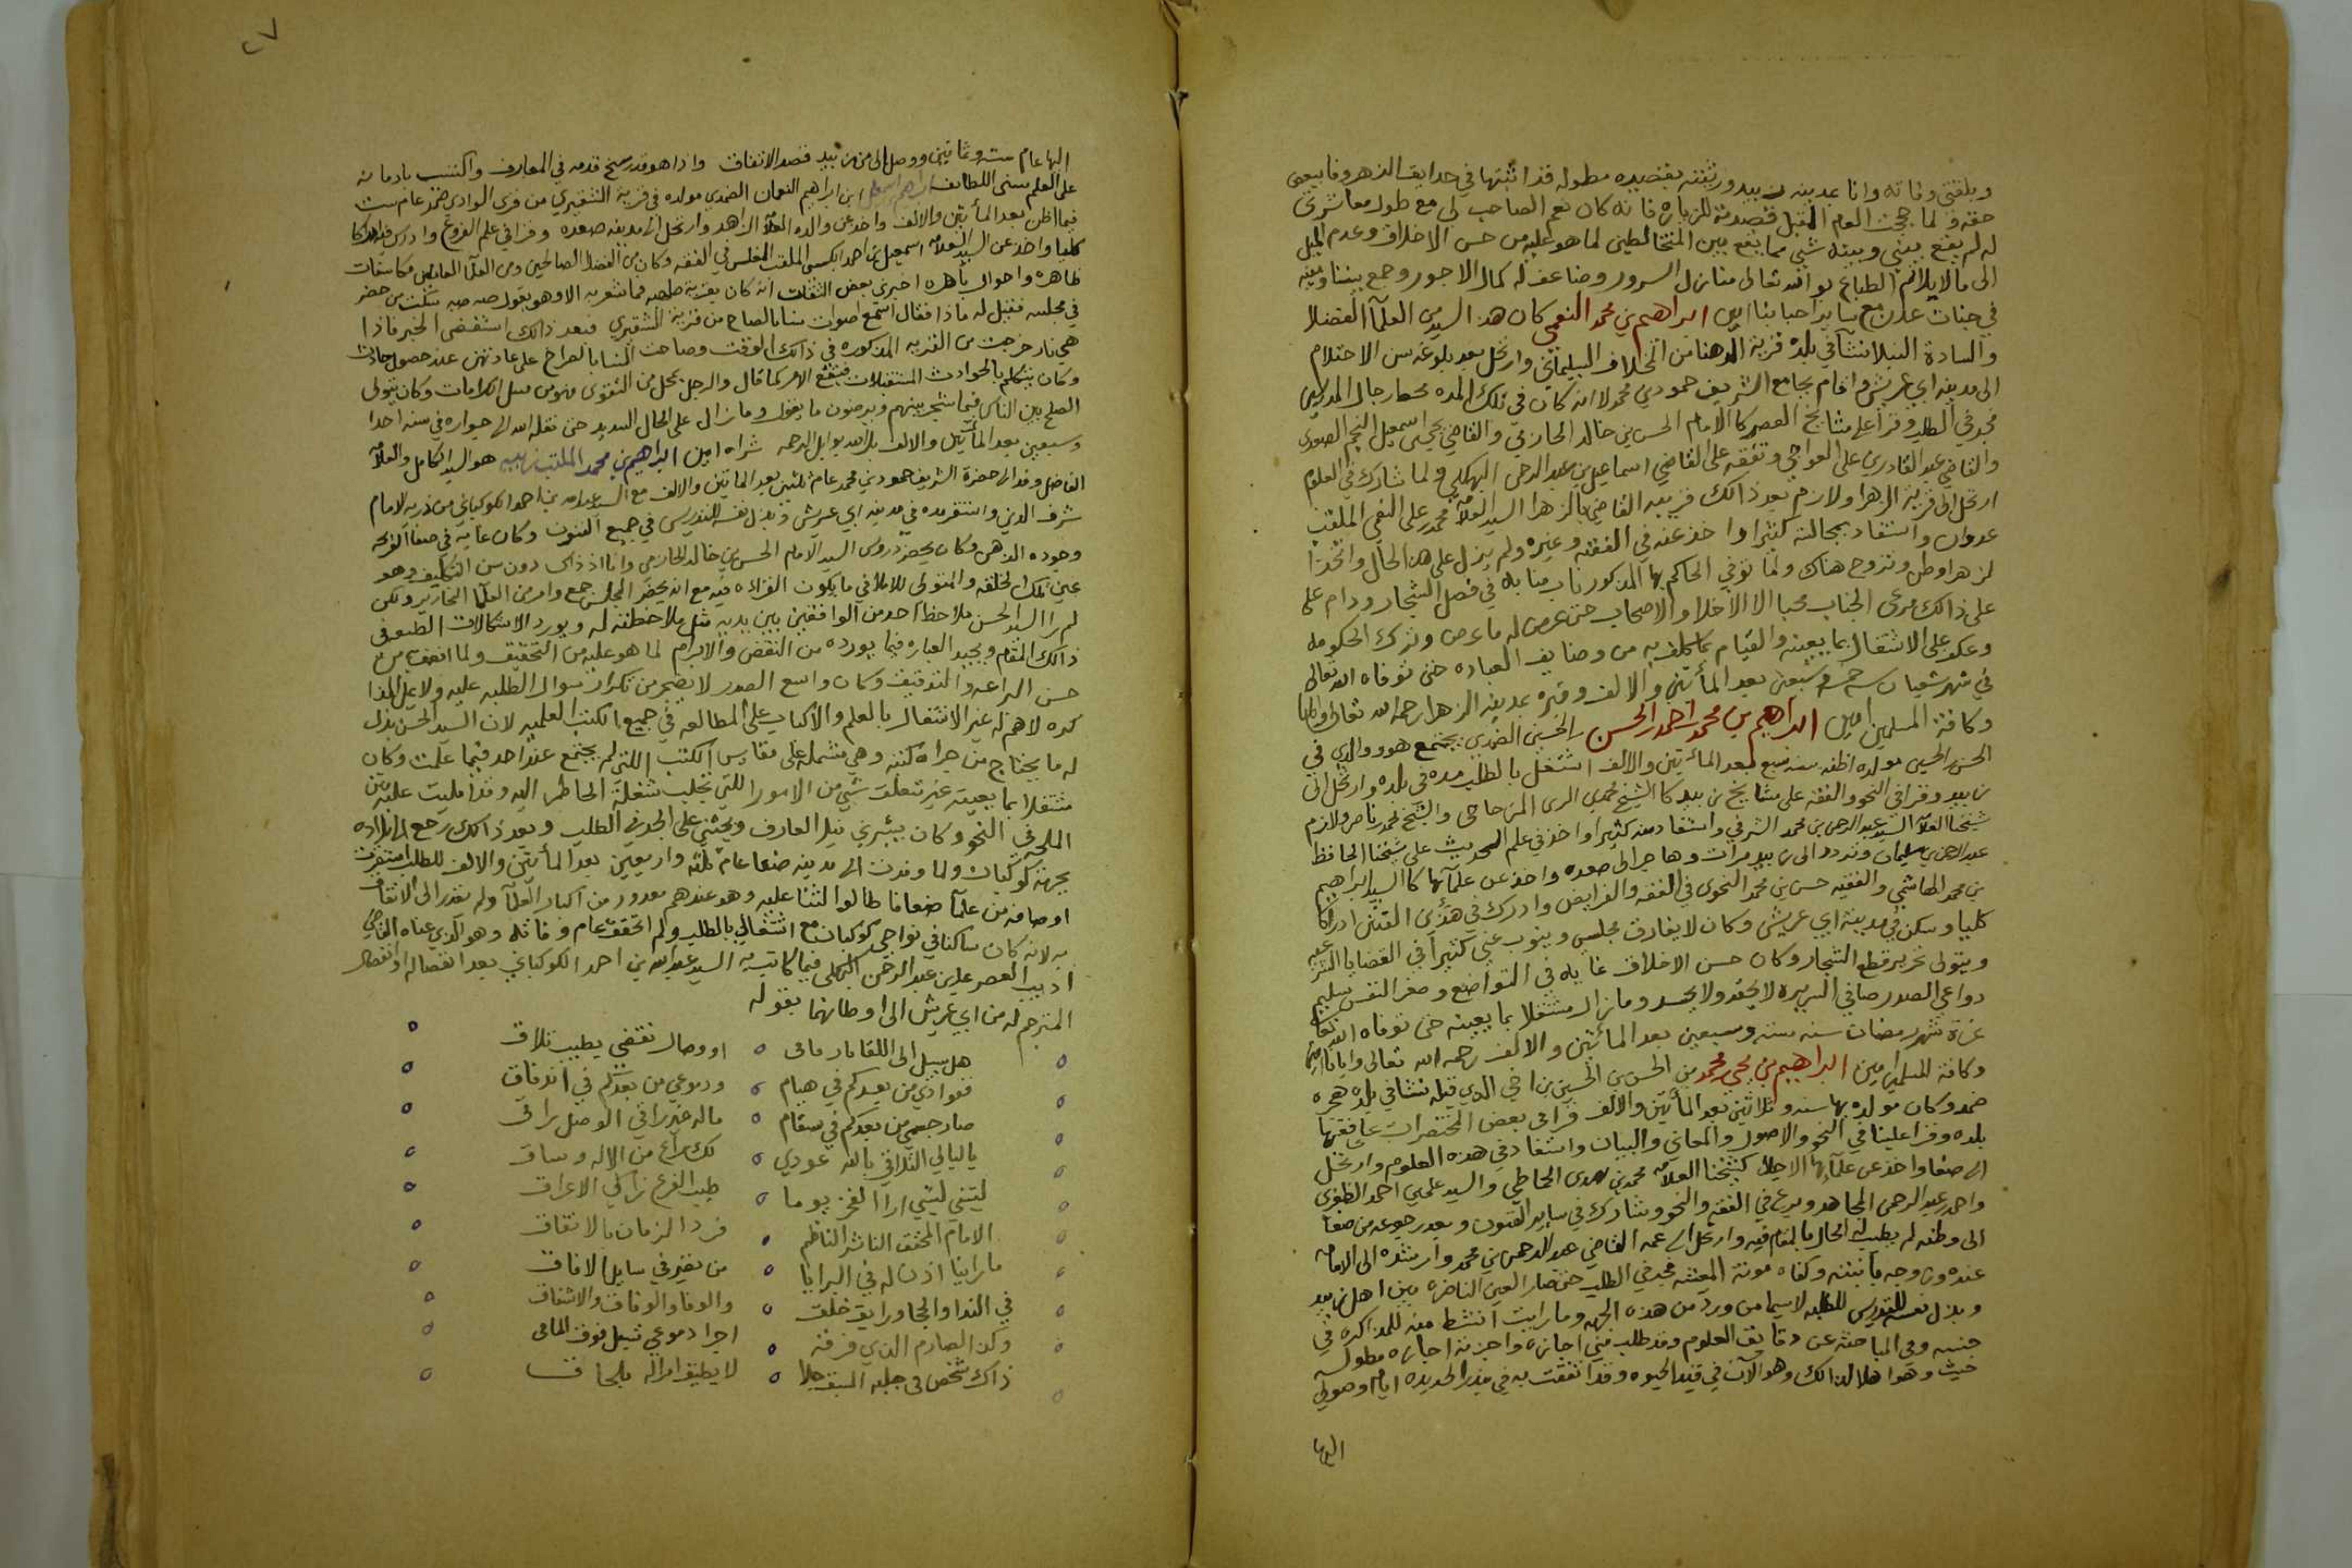 وبلغتني وفاته وانا بمدينة زبيد ورثيته بقصيده مطوله قد اثبتها في حدايق الزهر وفا بيعض
حقه ولما حججت العام المقبل قصدته للزياره فانه كان نعم الصاحب لي مع طول معاشرتي
له لم يقع بيني وبينه شي مما يقع بين المتخالطين لما هو عليه من حسن الاخلاق وعدم الميل
الى مالا يلائم الطباع بواه الله تعالى منازل السرور وضاعف له كمال الاجور وجمع بيننا وبينه
في جنات عدن مع ساير احبابنا امين ابراهيم بن محمد النعمي كان هذا السيد من العلمآ الفضلا
والسادة النبلا نشآ في بلده قرية الدهنا من المخلاف السليماني وارتحل بعد بلوغه سن الاحتلام
الى مدينه ابي عريش واقام بجامع الشريف حمود بن محمد لانه كان في تلك المده محط رحال المدرسين
فجد في الطلب وقرأ على مشايخ العصر كالامام الحسن بن خالد الحازمي والقاضي يحيى اسمعيل النجم الصعدي
والقاضي عبد القادر بن على العواجي وتفقه على القاضي اسماعيل بن عبد الرحمن البهكلي ولما شارك في العلوم
ارتحل الى قرية الزهرا ولازم بعد ذالك قريبه القاضي بالزهرا السيد العلامه محمد بن على النعمي الملقب
عدوان واستفاد بمجالسته كثيرا واخذ عنه في الفقه وغيره ولم يزل على هذا الحال واتخذ ا
لزهرا وطن وتزوج هناك ولما توفي الحاكم بها المذكور ناب منابه في فصل الشجار ودام على
على ذالك مرعي الجناب محببا الى الاخلا والاصحاب حتى عرض له ما عرض وترك الحكومه
وعكف على الاشتغال بما يعينه والقيام بما كلف به من وضايف العباده حتى توفاه الله تعالى
في شهر شعبان سنه خمس وسبعين بعد المأتين والالف وقبره بمدينه الزهرا رحمه الله تعالى وايانا
وكافة المسلمين امين ابراهيم بن محمد بن احمد بن الحسن بن الحسين الضمدي يجتمع هو ووالدي في
الحسن بن الحسين مولده اظنه سنه سبع بعد المأتين والالف اشتغل بالطلب مده في بلده وارتحل الى
زبيد وقرا في النحو والفقه على مشايخ زبيد كالشيخ محمد بن الزين المزجاجي والشيخ محمد بن ناصر ولازم
شيخنا العلامه السيد عبد الرحمن بن محمد الشرفي واستفاد منه كثيرا واخذ في علم الحديث على شيخنا الحافظ
عبد الرحمن بن سليمان وتردد الى زبيد مرات وهاجر الى صعده واخذ عن علمآئها كالسيد ابراهيم
بن محمد الهاشمي والفقيه حسن بن محمد النحوي في الفقه والفرايض وادرك في هذين الفنين ادراكا
كليا وسكن في مدينة ابي عريش وكان لا يفارق مجلسي وينوب عني كثيرا في القضايا الشرعيه
ويتولى تحرير قطع الشجار وكان حسن الاخلاق غايه في التواضع وصغر النفس سليم
دواعي الصدر صافي السريرة لا يحقد ولا يحسد وما زال مشتغلا بما يعينه حتى توفاه الله تعالى
غرة شهر رمضان سنه سته وسبعين بعد المأتين والالف رحمه الله تعالى وايانا
وكافة المسلمين امين ابراهيم بن يحيى بن محمد بن الحسن بن الحسين بن اخي الذي قبله نشا في بلده هجره
ضمد وكان مولده بها سنه وثلاثين بعد المأتين والالف قرا في بعض المختصرات على فقهآ
بلده وقرا علينا في النحو والاصول والمعاني والبيان واستفاد في هذه العلوم وارتحل
الى صنعا واخذ عن علمائها الاجلا كشيخنا العلامه محمد بن مهدي الحماطي والسيد على بن احمد الظفري
واحمد بن عبد الرحمن المجاهد وبرع في الفقه والنحو وشارك في ساير الفنون وبعد رجوعه من صنعا
الى وطنه لم يطيب له الحال بالمقام فيه وارتحل الى عمه القاضي عبد الرحمن بن محمد وارشده الى الاقامه
عنده وزوجه بابنته وكفاه مونة المعيشه فجد في الطلب حتى صار العين الناضره بين اهل زبيد
وبذل نفسه للتدريس للطلبه لا سيما من ورد من هذه الجهه وما رايت انشط منه للمذاكره في
حبسه وفي المباحثه عن دقايق العلوم وقد طلب مني اجازه واجزته اجازه مطوله
حيث وهو اهلا لذالك وهو الآن في قيد الحيوه وقد اتفقت به في بندر الحديده ايام وصولي
اليها
٢٧
اليها عام سته وثمانين ووصل الى من زبيد قصد الاتفاق واذا هو قد رسخ قدمه في المعارف واكتسب بادمانه
على العلم سني اللطائف ابراهيم اسمعيل ابن ابراهيم النعمان الضمدي مولده في قرية الشقيري من قرى الوادي ضمد عام ست
فيما اظن بعد المأتين والالف واخذ عن والده العلامه الزاهد وارتحل الى مدينه صعده وقرا في علم الفروع وادرك فيه ادراكا
كليا واخذ عن السيد العلامه اسمعيل بن احمد الكبسي الملقب المغلس في الفقه وكان من الفضلا الصالحين ومن العلمآ العاملين مكاشفات
ظاهره واحوال باهره اخبرني بعض الثقات انه كان بقرية صلهبه فما شعر به الا وهو يقول صه صه يسكت من حضر
في مجلسه فقيل له ماذا فقال اسمع اصوات نسا بالصياح من قرية الشقيري فبعد ذالك استقضى الخبر فاذا
هي نار خرجت من القريه المذكوره في ذالك الوقت وصاحت النسا بالصراخ على عادتهن عند حصول حادث
وكان يتكلم بالحوادث المستقبلات فيقع الامر كما قال والرجل بمحل من التقوى فهو من قبيل الكرامات وكان يتولى
الصلح بين الناس فيما شجر بينهم ويرضون ما يقول وما زال على الحال السديد حتى نقله الله الى جواره في سنه احدا
وسبعين بعد المأتين والالف بل الله بوابل الرحمه ثراه امين ابراهيم بن محمد الملقب زبيبه هو السيد الكامل والعلامه
الفاضل وفد الى حضرة الشريف حمود بن محمد عام ثلثين بعد المأتين والالف مع السيد عبد الله بن احمد الكوكباني من ذرية الامام
شرف الدين واستقر مده في مدينه ابي عريش وبذل نفسه للتدريس في جميع الفنون وكان غايه في صفا القريحه
وجوده الذهن وكان يحضر دروس السيد الامام الحسن بن خالد الحازمي وانا اذ ذاك دون سن التكليف وهو
عين تلك الحلقه والمتولى للاملا في ما يكون القراءه فيه مع انه يحضر المجلس جمع وافر من العلمآ النحارير ولكن
لم ار السيد الحسن يلاحظ احد من الواقفين بين يديه مثل ملاحظته له ويورد الاشكالات الصعبه في
ذالك المقام ويجيد العباره فيما يورده من النقض والابرام لما هو عليه من التحقيق ولما اتصف به من
حسن البراعه والتوفيق وكان واسع الصدر لا يضجر من تكرار سوال الطلبه عليه ولا يمل المذا
كره لا هم له غير الاشتغال بالعلم والاكباب على المطالعه في جميع الكتب العلميه لان السيد الحسن بذل
له ما يحتاج من خزانه كتبه وهي مشتمله على نفايس الكتب التي لم يجتمع عند احد فيما علمت وكان
مشتغلا بما يعينه غير متعلق بشي من الامور اللتي تجلب شغلة الخاطر اليه وقد امليت عليه متن
الملحه في النحو وكان يبشرني بنيل المعارف ويحثني على الجد في الطلب وبعد ذالك رجع الى بلاده
بجهة كوكبان ولما وفدت الى مدينه صنعا عام ثلثه واربعين بعد المأتين والالف للطلب استفدت
اوصافه من علمآ صنعا فاطالوا الثنا عليه وهو عندهم معدود من اكبار العلمآ ولم يقدر الى الاتفاق
به لانه كان ساكنا في نواحي كوكبان مع اشتغالي بالطلب ولم اتحقق عام وفاته وهو الذي عناه القاضي
اديب العصر على بن عبد الرحمن البهكلي فيما كاتب به السيد عبد الله بن احمد الكوكباني بعد انفصاله وانفصال
المترجم له من ابي عريش الى اوطانهما بقوله
هل سبيل الى اللقا يا رفاقي ٥ او وصال نقتضي بطيب تلاق
ففوادي من بعدكم في هيام ٥ ودموعي من بعدكم في اندفاق
صار جسمي من بعدكم في سقام ٥ ماله غير راقي الوصل راقي
ياليالي التلاقي بالله عودي ٥ لك راع من الاله وساق
ليتني ليتني ارا الفخر يوما ٥ طيب الفرع زاكي الاعراق
الامام المحقق الناثر الناظم ٥ فرد الزمان بالاتفاق
ما راينا اذن له في البرايا ٥ من نضير في ساير الافاق
في الندا والحجا ورايق خلق ٥ والوفا والوفاق والاشفاق
وكذا الصارم الذي فرقه ٥ اجرا دموعي تسيل فوق المآقي
ذاك شخص في حلبه السبق جلا ٥ لا يطيق امراله بلحاق